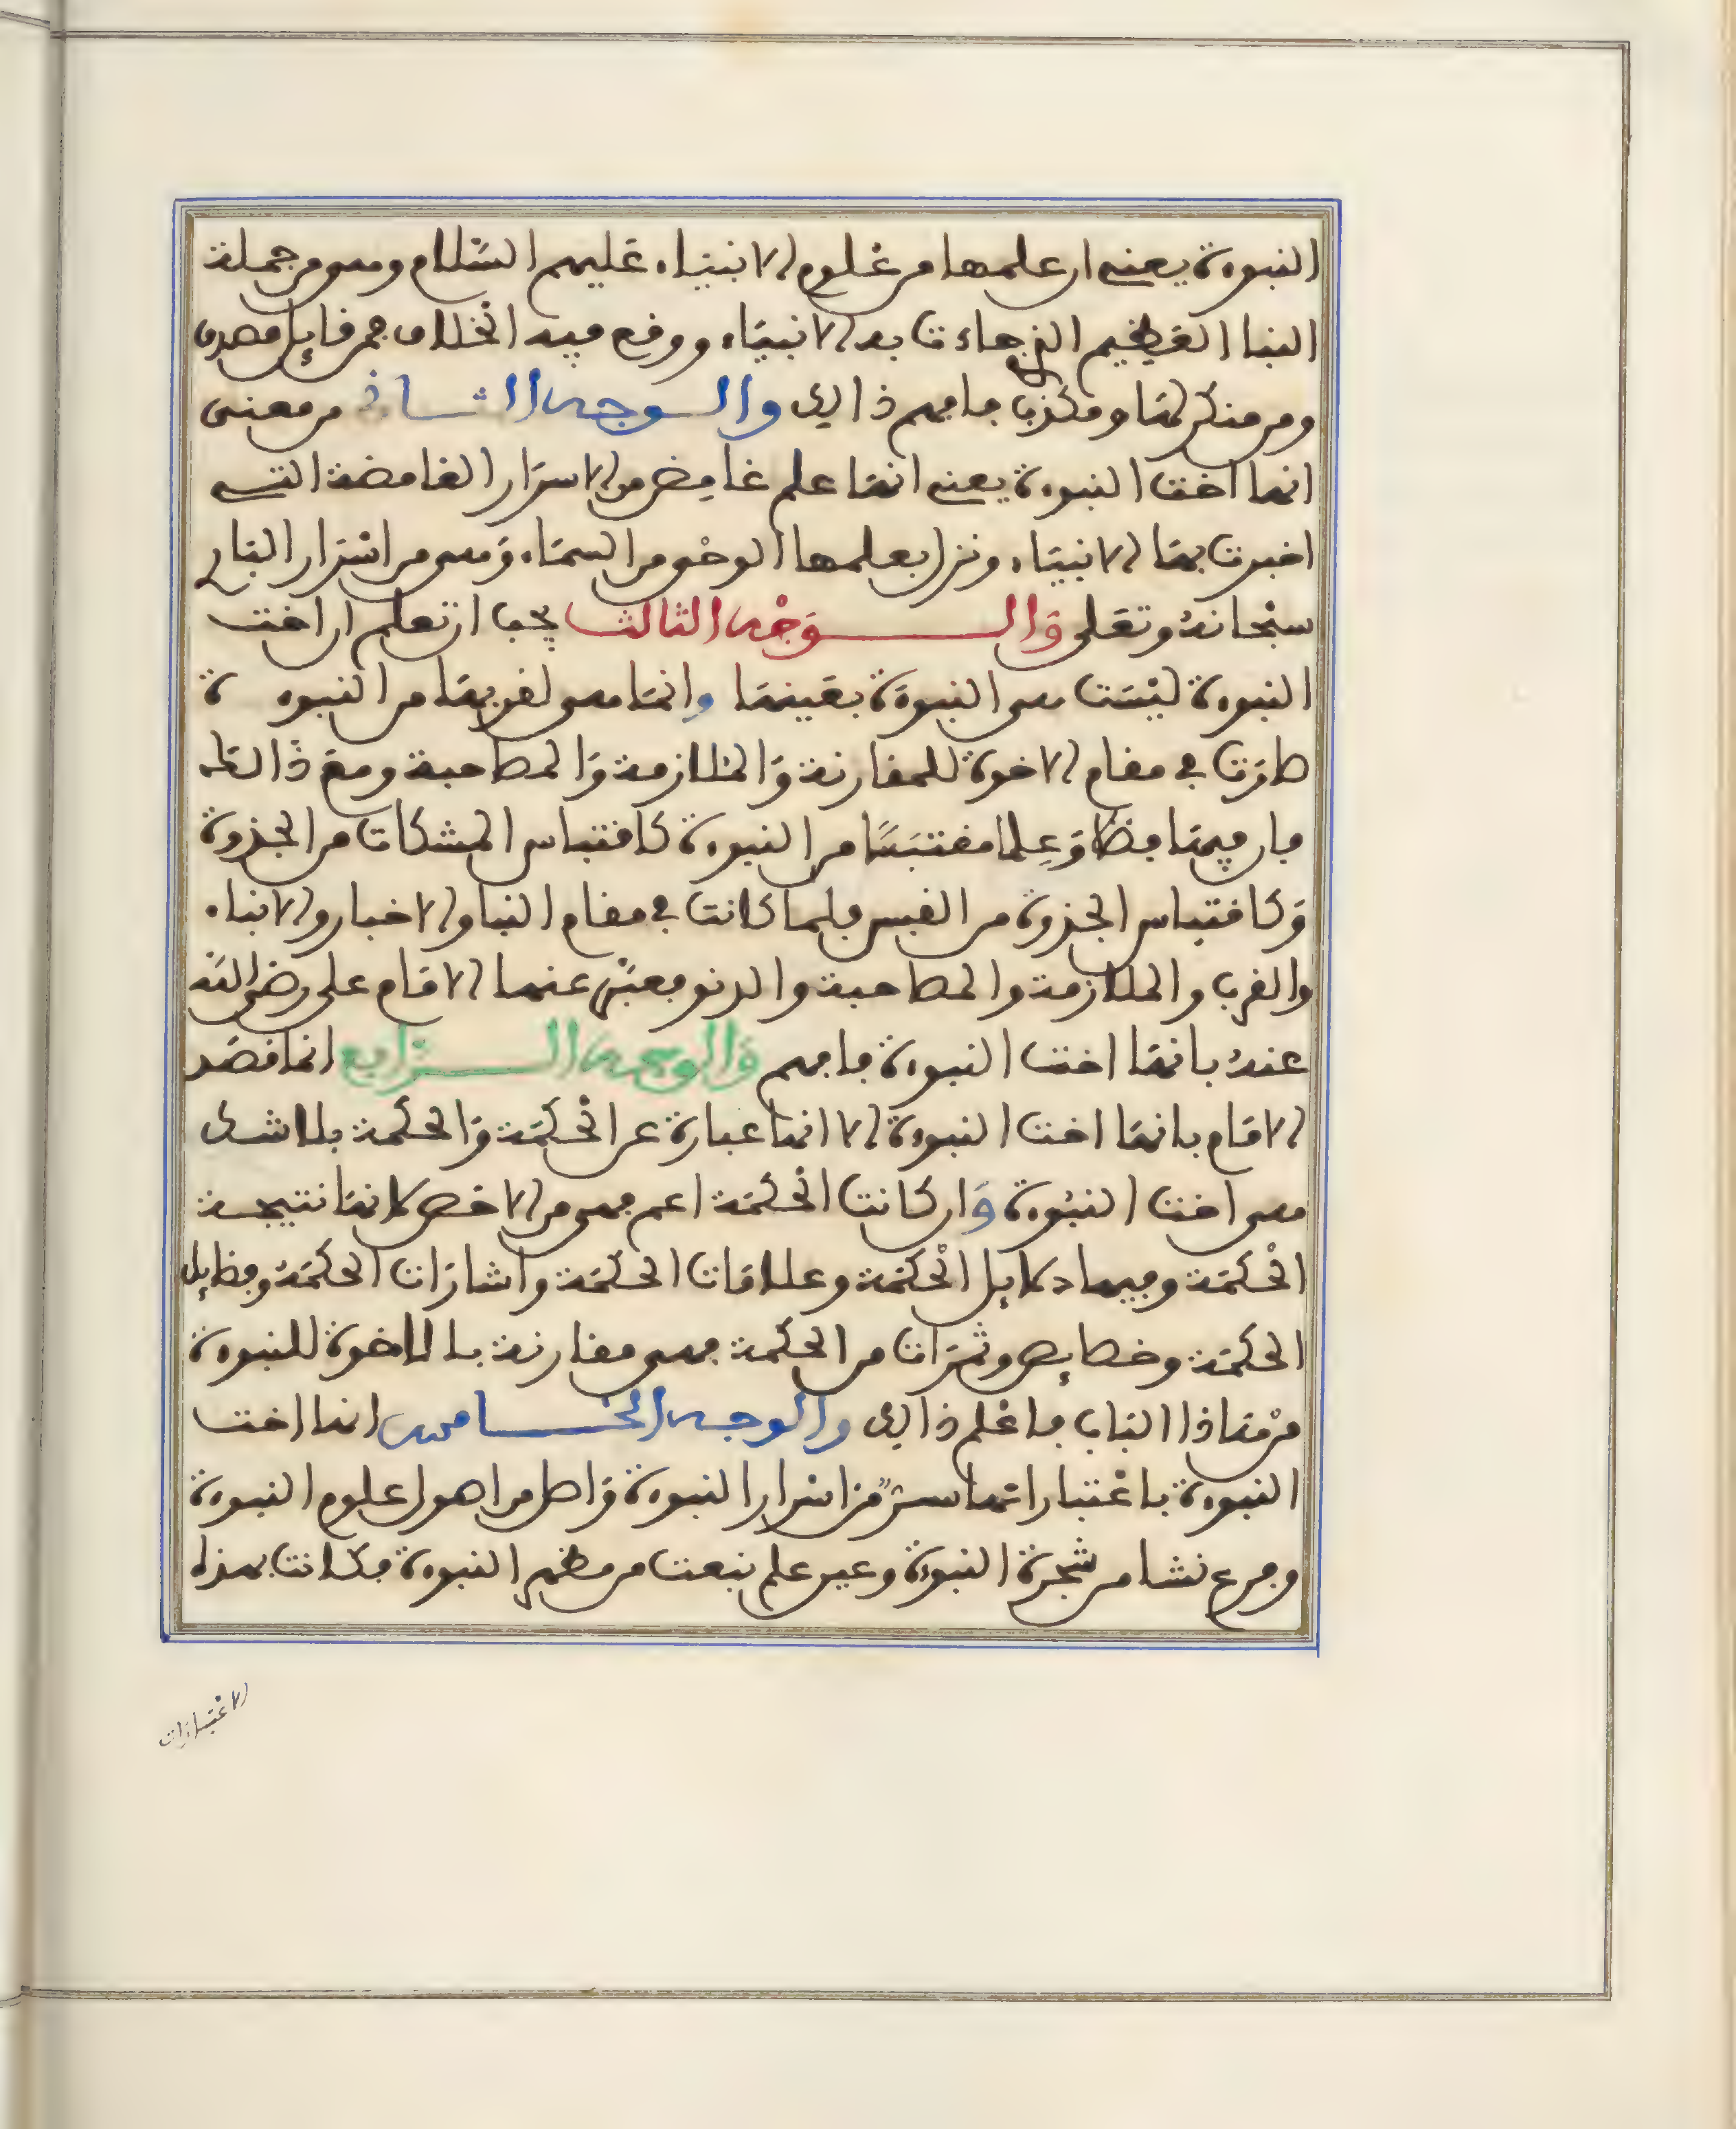 النبوة يعني ان علمها من علوم الانبياء عليهم السلام وهي من جملة
النبا العظيم الذي جاءت به الانبياء ووقع فيه الخلاف فمن قايل مصدق
ومن منكر لها ومكذب فافهم ذالك والوجه الثاني من معنى
انها اخت النبوة يعني انها علم غامض من الاسرار الغامضة التي
اخبرت بها الانبياء ونزل بعلمها الوحي من السماء وهي من اسرار الباري
سبحانه وتعلى والوجه الثالث يجب ان تعلم ان اخت
النبوة ليست هي النبوة بعينها وانما هي لقربها من النبوة
صارت في مقام الاخوة للمقارنة والملازمة والمصاحبة ومع ذالك
فان فيها فضلا وعلما مقتبسا من النبوة كاقتباس المشكات من الجذوة
وكاقتباس الجذوة من القبس فلما كانت في مقام النبا والاخبار والانباء
والقرب والملازمة والمصاحبة والدنو فعبر عنها الامام علي رضي الله
عنه بانها اخت النبوة فافهم والوجه الرابع انما قصد
الامام بانها اخت النبوة لانها عبارة عن الحكمة والحكمة بلا شك
هي اخت النبوة وان كانت الحكمة اعم فهي من الاخص لانها نتيجة
الحكمة وفيها دلايل الحكمة وعلامات الحكمة واشارات الحكمة وفضايل
الحكمة وخصايص وثمرات من الحكمة فهي مقارنة بالاخوة للنبوة
من هاذا الباب فاعلم ذالك والوجه الخامس انها اخت
النبوة باعتبار انها سر من اسرار النبوة واصل من اصول علوم النبوة
وفرع نشا من شجرة النبوة وعين علم نبعت من مظهر النبوة فكانت بهذه
الاعتبارات